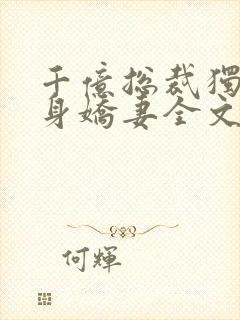 千億總裁獨
身嬌妻全文
何輝